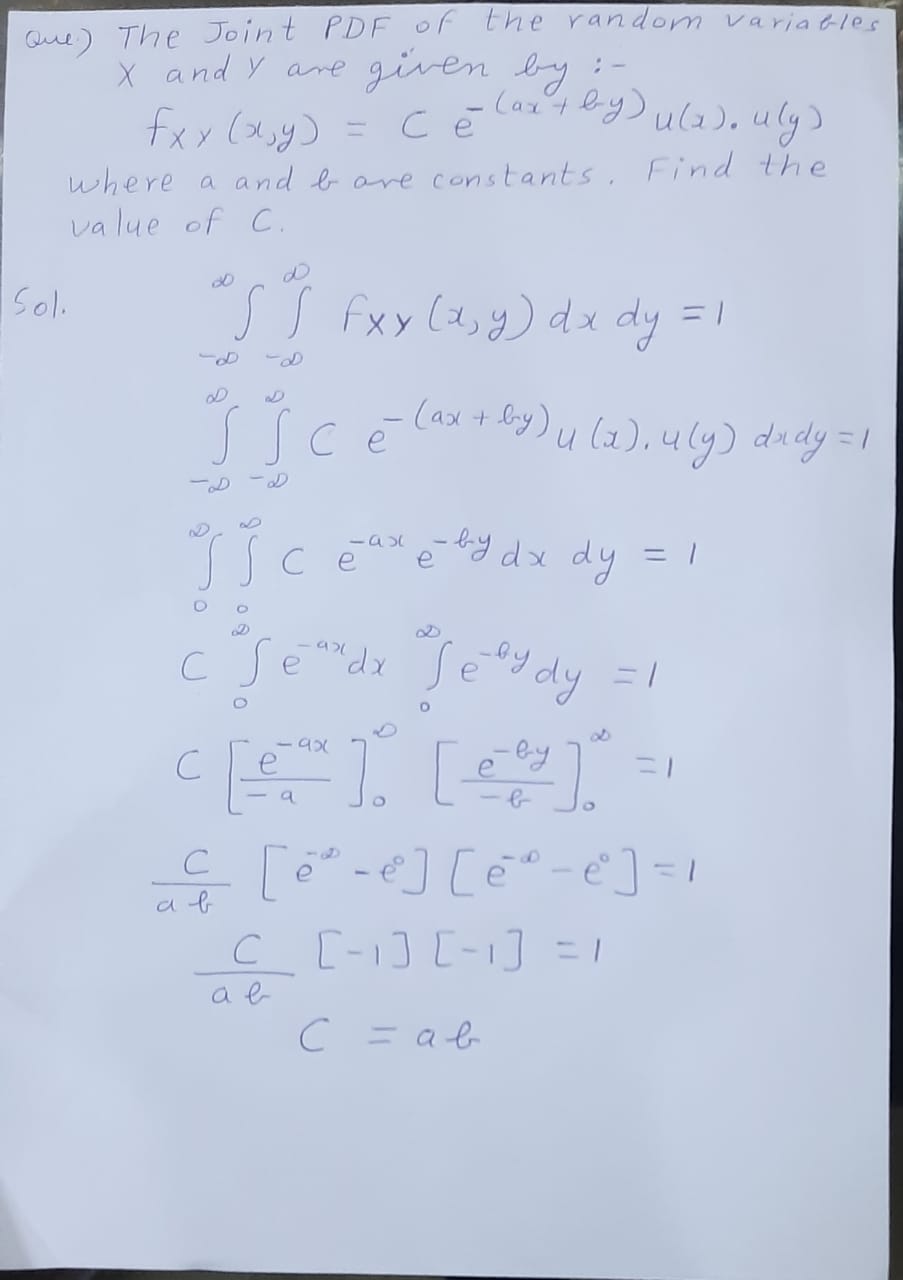 Que.) The Joint PDF of the random variables
X and Y are given by :-
fxy (x,y) = C e^-(ax + by) u(x). u(y)
where a and b are constants. Find the
value of C.
Sol. ∞∫-∞ ∞∫-∞ fxy (x,y) dx dy = 1
∞∫-∞ ∞∫-∞ C e^-(ax + by) u(x). u(y) dxdy = 1
∞∫0 ∞∫0 C e^-ax e^-by dx dy = 1
C ∞∫0 e^-ax dx ∞∫0 e^-by dy = 1
C [e^-ax / -a]∞0 [e^-by / -b]∞0 = 1
C / ab [e^-∞ - e^0] [e^-∞ - e^0] = 1
C / ab [-1] [-1] = 1
C = ab